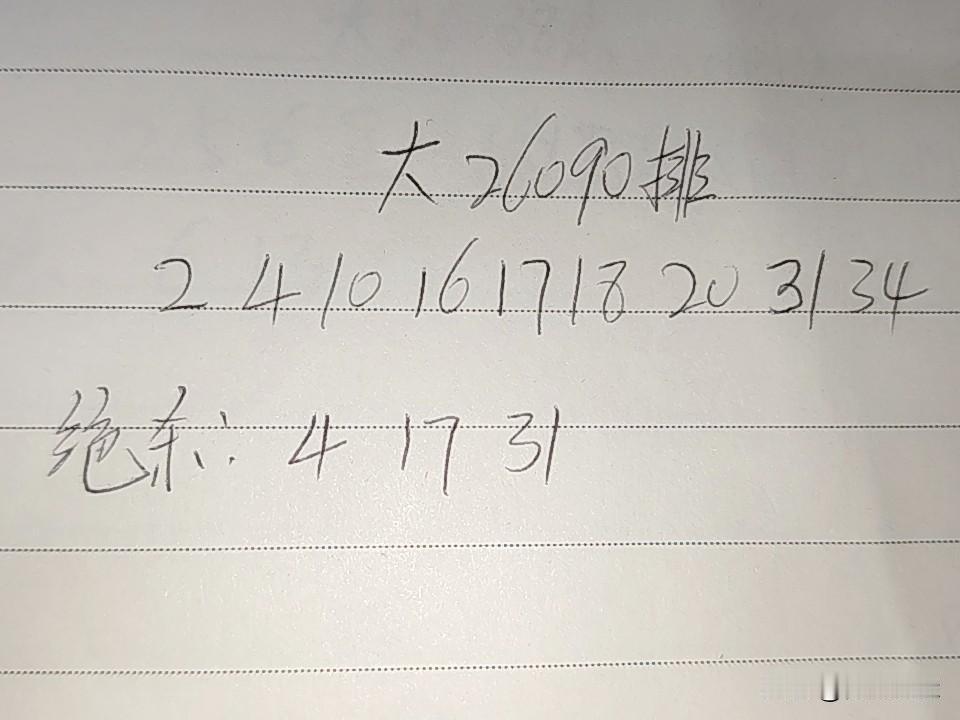 大26090排
2 4 10 16 17 18 20 31 34
绝杀: 4 17 31